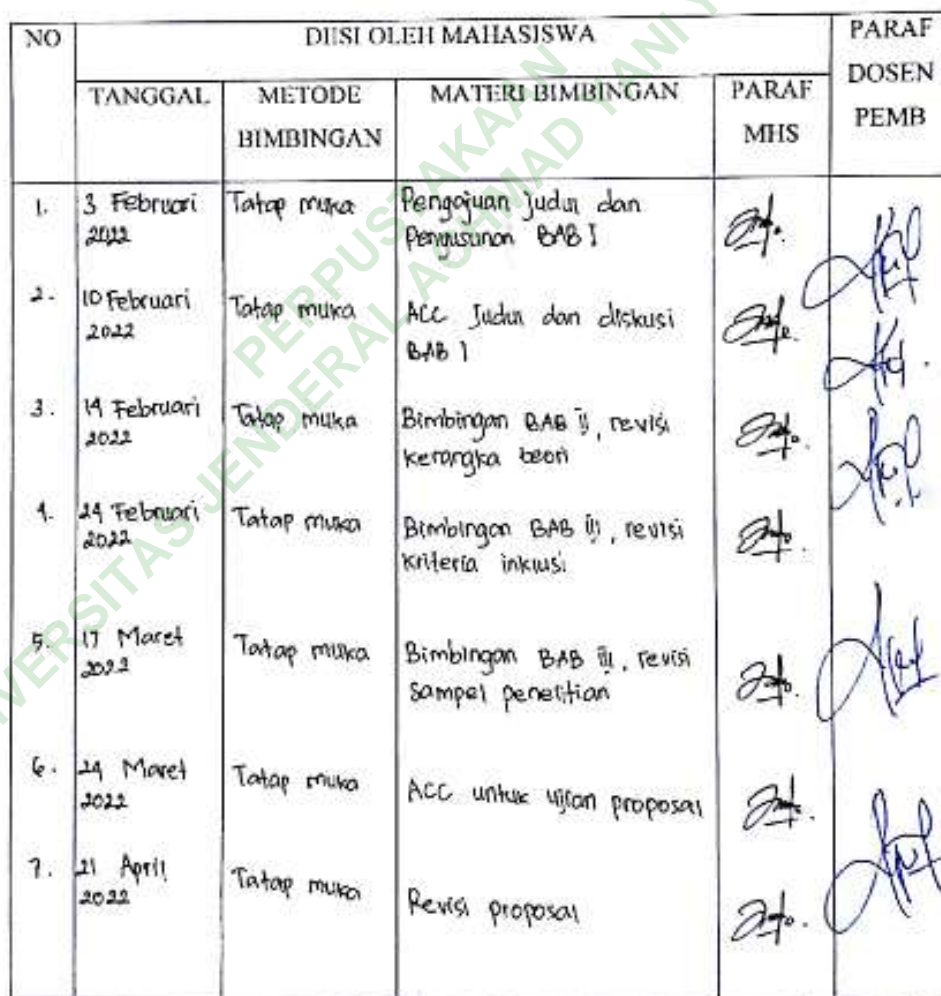 NO
DIISI OLEH MAHASISWA
PARAF
DOSEN
PEMB
TANGGAL
METODE
BIMBINGAN
MATERI BIMBINGAN
PARAF
MHS
1. 3 Februari Tatap muka Pengajuan Judul dan
2022 Penyusunan BAB I
2. 10 Februari Tatap muka ACC Judul dan diskusi
2022 BAB I
3. 14 Februari Tatap muka Bimbingan BAB ii, revisi
2022 kerangka teori
4. 24 Februari Tatap muka Bimbingan BAB iii, revisi
2022 kriteria inklusi
5. 17 Maret Tatap muka Bimbingan BAB iii, revisi
2022 Sampel penelitian
6. 24 Maret Tatap muka ACC untuk ujian proposal
2022
7. 21 April Tatap muka Revisi proposal
2022
PERPUSTAKAAN
JENDERAL ACHMAD YANI